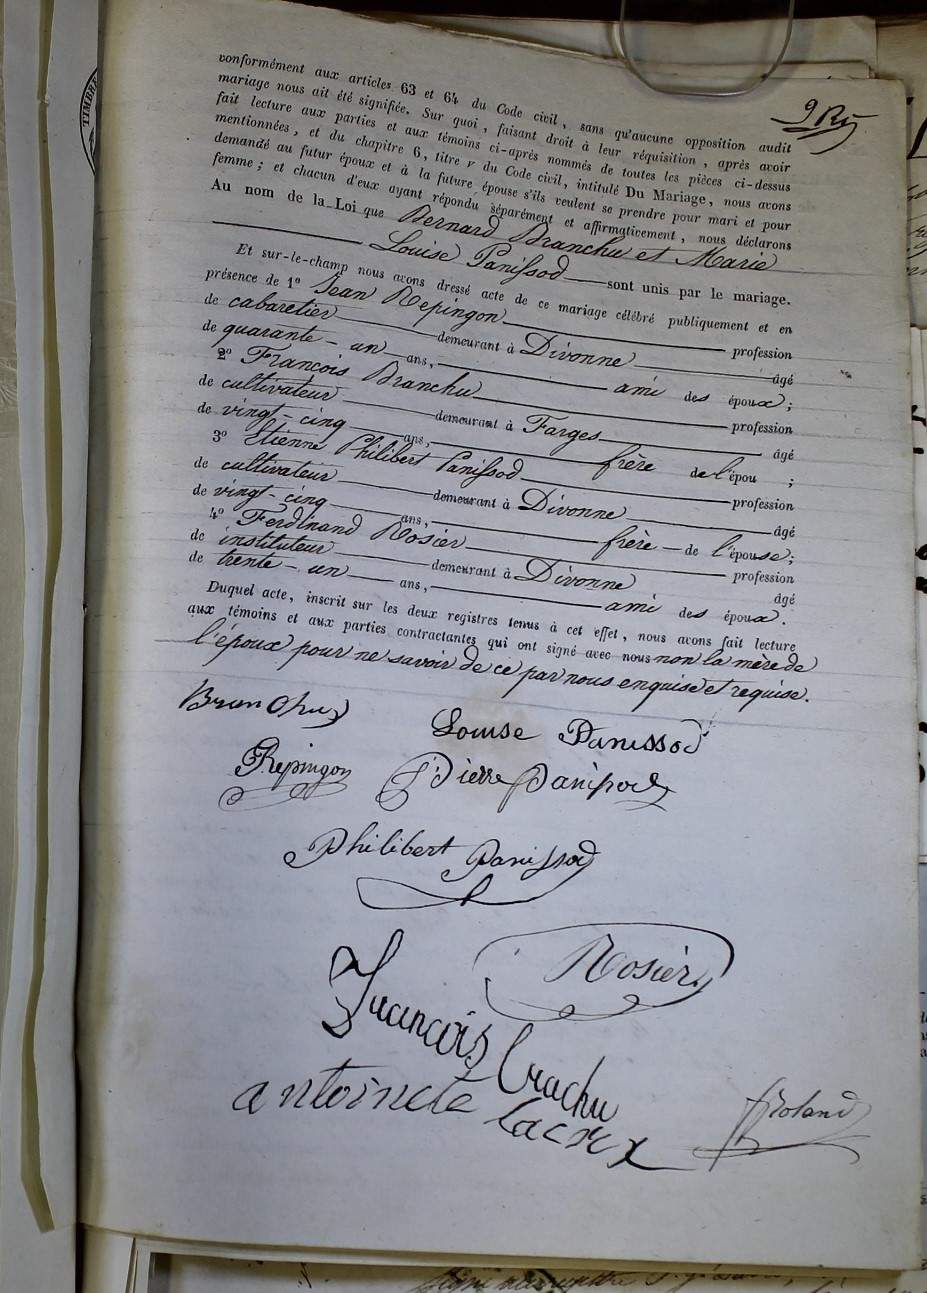 TIMBRE
conformément aux articles 63 et 64 du Code civil, sans qu'aucune opposition audit
mariage nous ait été signifiée. Sur quoi, faisant droit à leur réquisition, après avoir
fait lecture aux parties et aux témoins ci-après nommés de toutes les pièces ci-dessus
mentionnées, et du chapitre 6, titre v du Code civil, intitulé Du Mariage, nous avons
demandé au futur époux et à la future épouse s'ils veulent se prendre pour mari et pour
femme; et chacun d'eux ayant répondu séparément et affirmativement, nous déclarons
Au nom de la Loi que Bernard Branchu et Marie
Louise Panissod sont unis par le mariage.
Et sur-le-champ nous avons dressé acte de ce mariage célébré publiquement et en
présence de 1º Jean Repingon profession
de cabaretier demeurant à Divonne âgé
de quarante-un ans, ami des époux;
2º François Branchu profession
de cultivateur demeurant à Farges âgé
de vingt-cinq ans, frère de l'épou ;
3º Etienne Philibert Panissod profession
de cultivateur demeurant à Divonne âgé
de vingt-cinq ans, frère de l'épouse;
4º Ferdinand Rosier profession
de instituteur demeurant à Divonne âgé
de trente-un ans, ami des époux.
Duquel acte, inscrit sur les deux registres tenus à cet effet, nous avons fait lecture
aux témoins et aux parties contractantes qui ont signé avec nous non la mère de
l'époux pour ne savoir de ce par nous enquise et requise.
Branchu
Louise Panissod
Repingon
Pierre Panissod
Philibert Panissod
Rosier
François brachu
antoinete lacrix
Roland